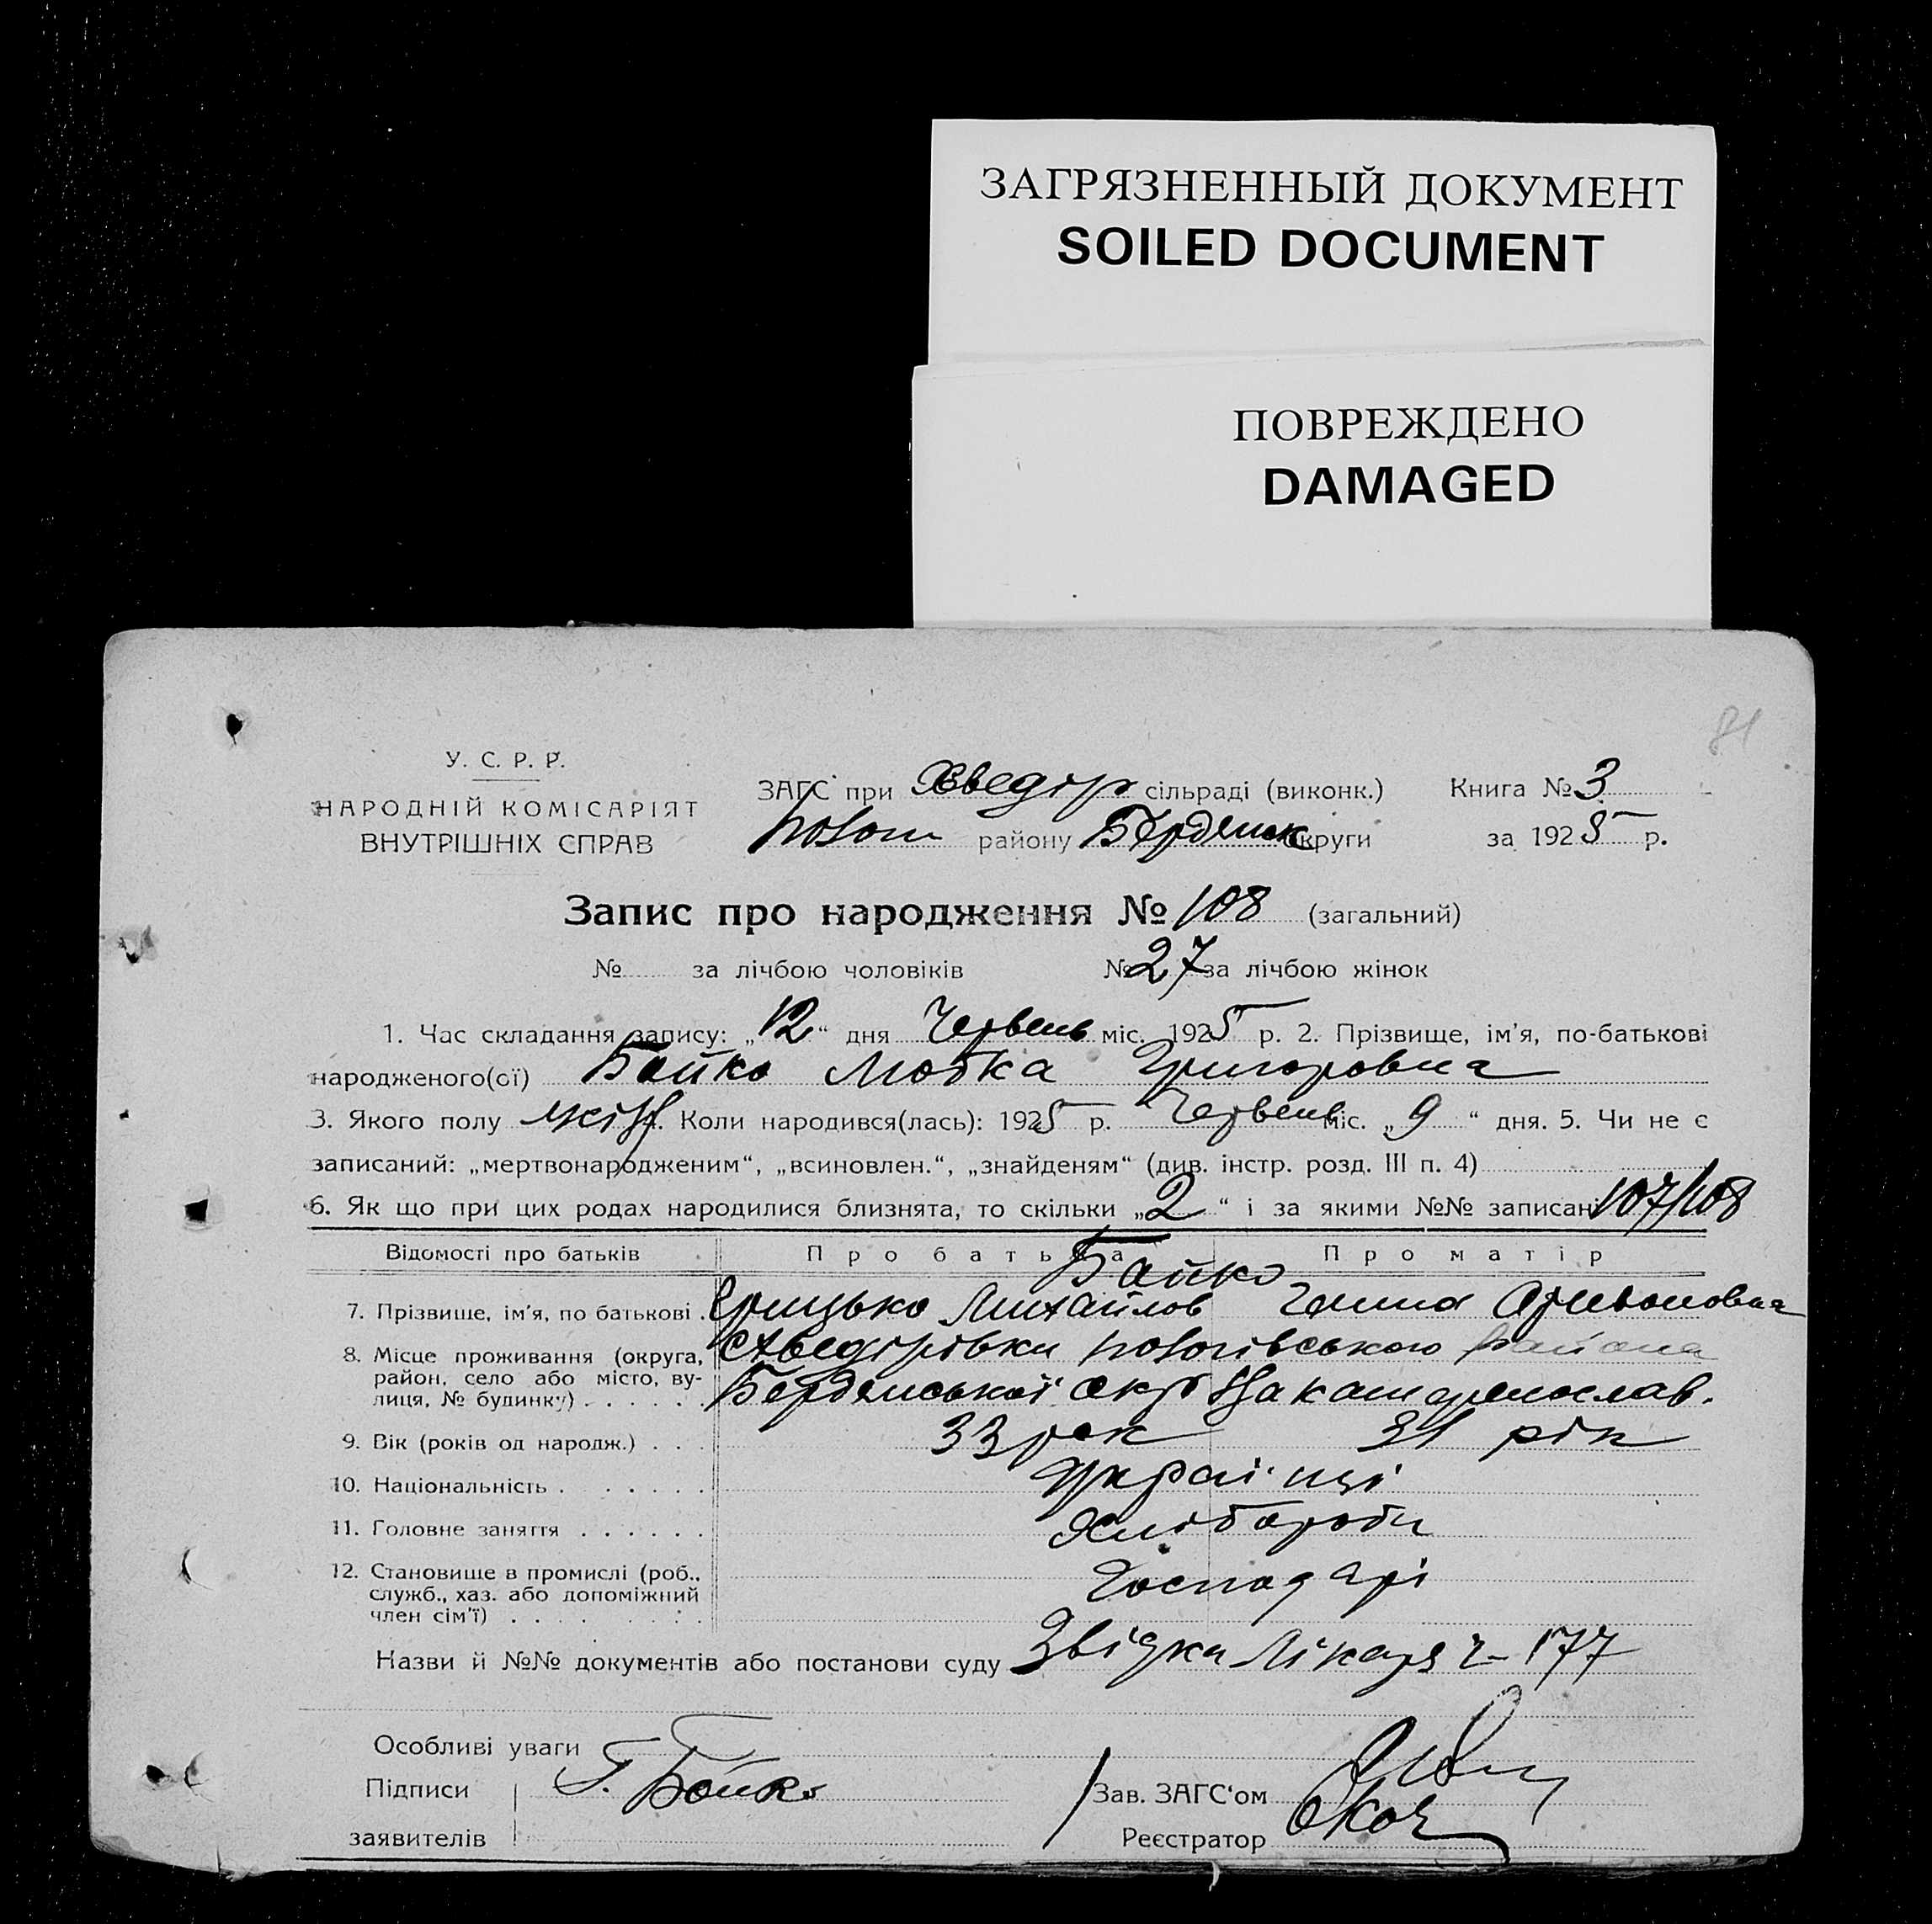 ЗАГРЯЗНЕННЫЙ ДОКУМЕНТ
SOILED DOCUMENT
ПОВРЕЖДЕНО
DAMAGED
81
У. С. Р. Р.
НАРОДНІЙ КОМІСАРІЯТ
ВНУТРІШНІХ СПРАВ
ЗАГС при Хведір сільраді (виконк.) Книга № 3
Полог району Бердянськ округи за 1925 р.
Запис про народження № 108 (загальний)
№ за лічбою чоловіків № 27 за лічбою жінок
1. Час складання запису: „12“ дня Червень міс. 1925 р. 2. Прізвище, ім'я, по-батькові
народженого(ої) Бойко Любка Григоровна
3. Якого полу жін 4. Коли народився(лась): 1925 р. Червень міс. „9“ дня. 5. Чи не є
записаний: „мертвонародженим“, „всиновлен.“, „знайденям“ (див. інстр. розд. III п. 4)
6. Як що при цих родах народилися близнята, то скільки „2“ і за якими №№ записані 107/108
Відомості про батьків Про батька Про матір
Бойко
7. Прізвище, ім'я, по батькові . Грицько Михайлов Ганна
8. Місце проживання (округа, район, село або місто, вулиця, № будинку) . . . . . . Хведірівки Пологівського района
Бердянської окр катеринослав.
9. Вік (років од народж.) . . . 33 рок 31 рік
10. Національність . . . . . . . Українці
11. Головне заняття . . . . . . Хлібороби
12. Становище в промислі (роб., служб., хаз. або допоміжний член сім'ї) . . . . . . . . Господарі
Назви й №№ документів або постанови суду Звідка Лікаря ч– 177
Особливі уваги
Підписи Г. Бойко Зав. ЗАГС'ом
заявителів Реєстратор